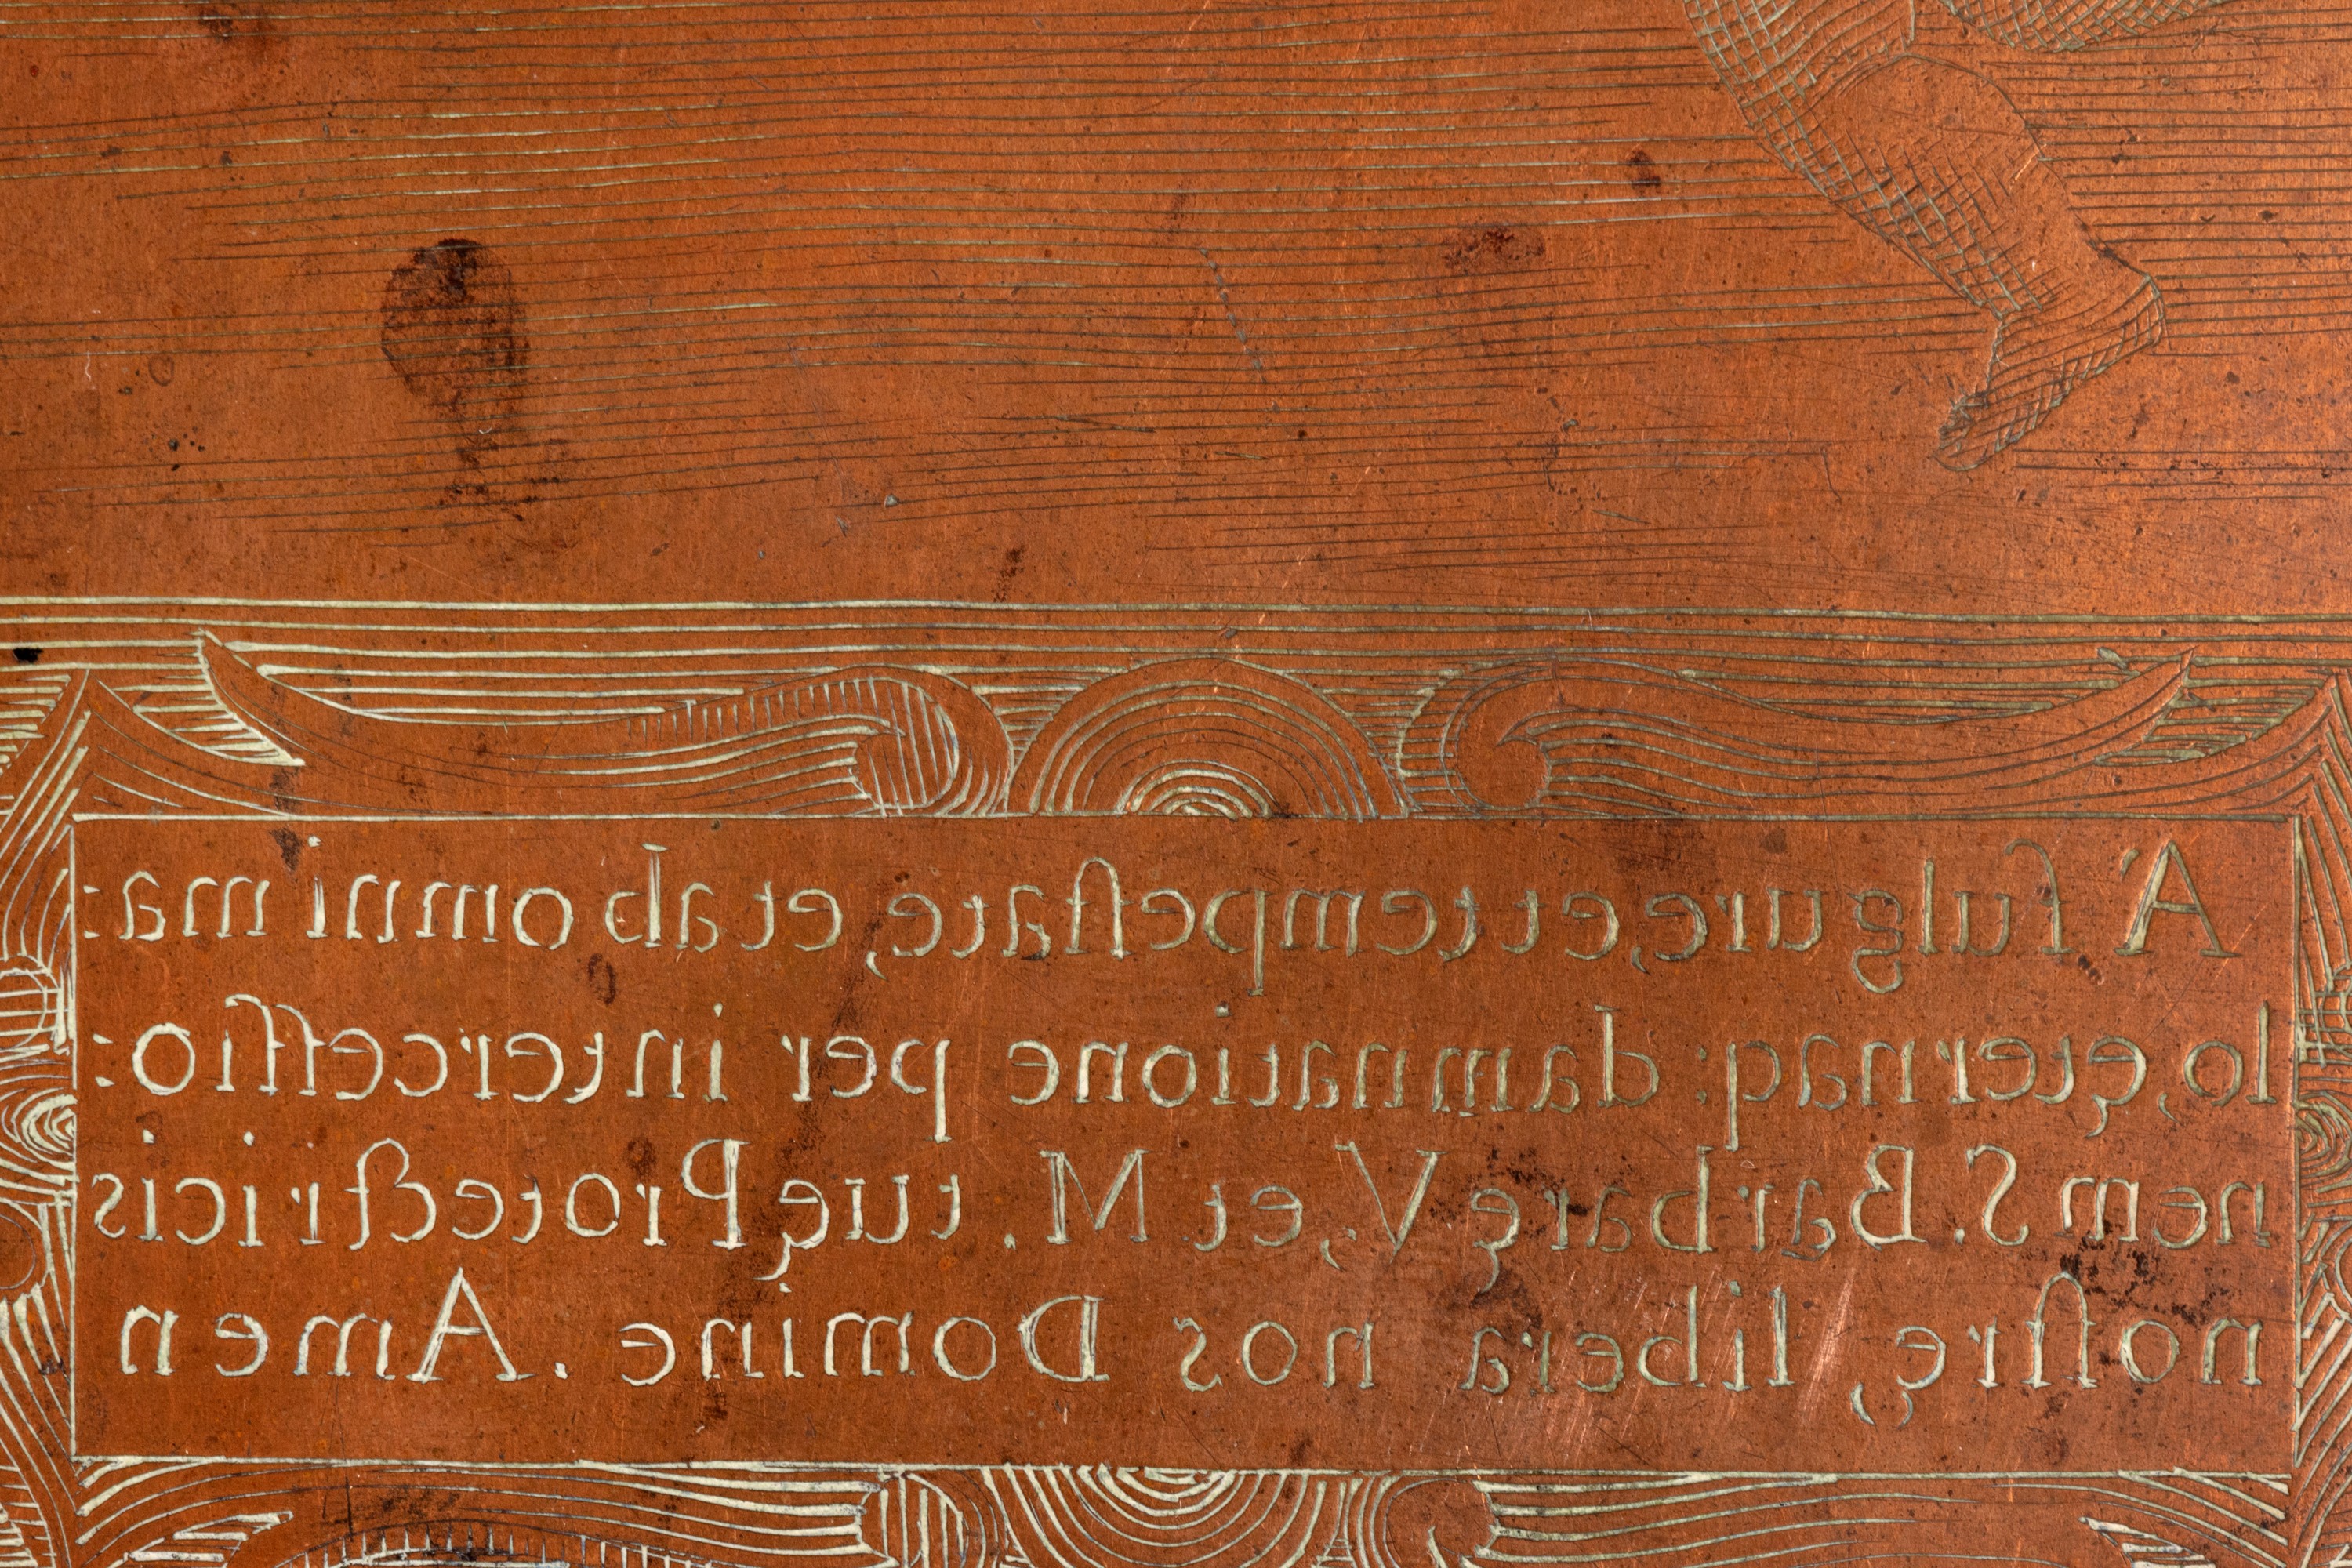 A' fulgure, et tempeſtate, et ab omni ma:
lo, ęternaq; damnatione per interceſſio:
nem S. Barbarę V, et M. tuę Protectricis
noſtrę, libera nos Domine. Amen